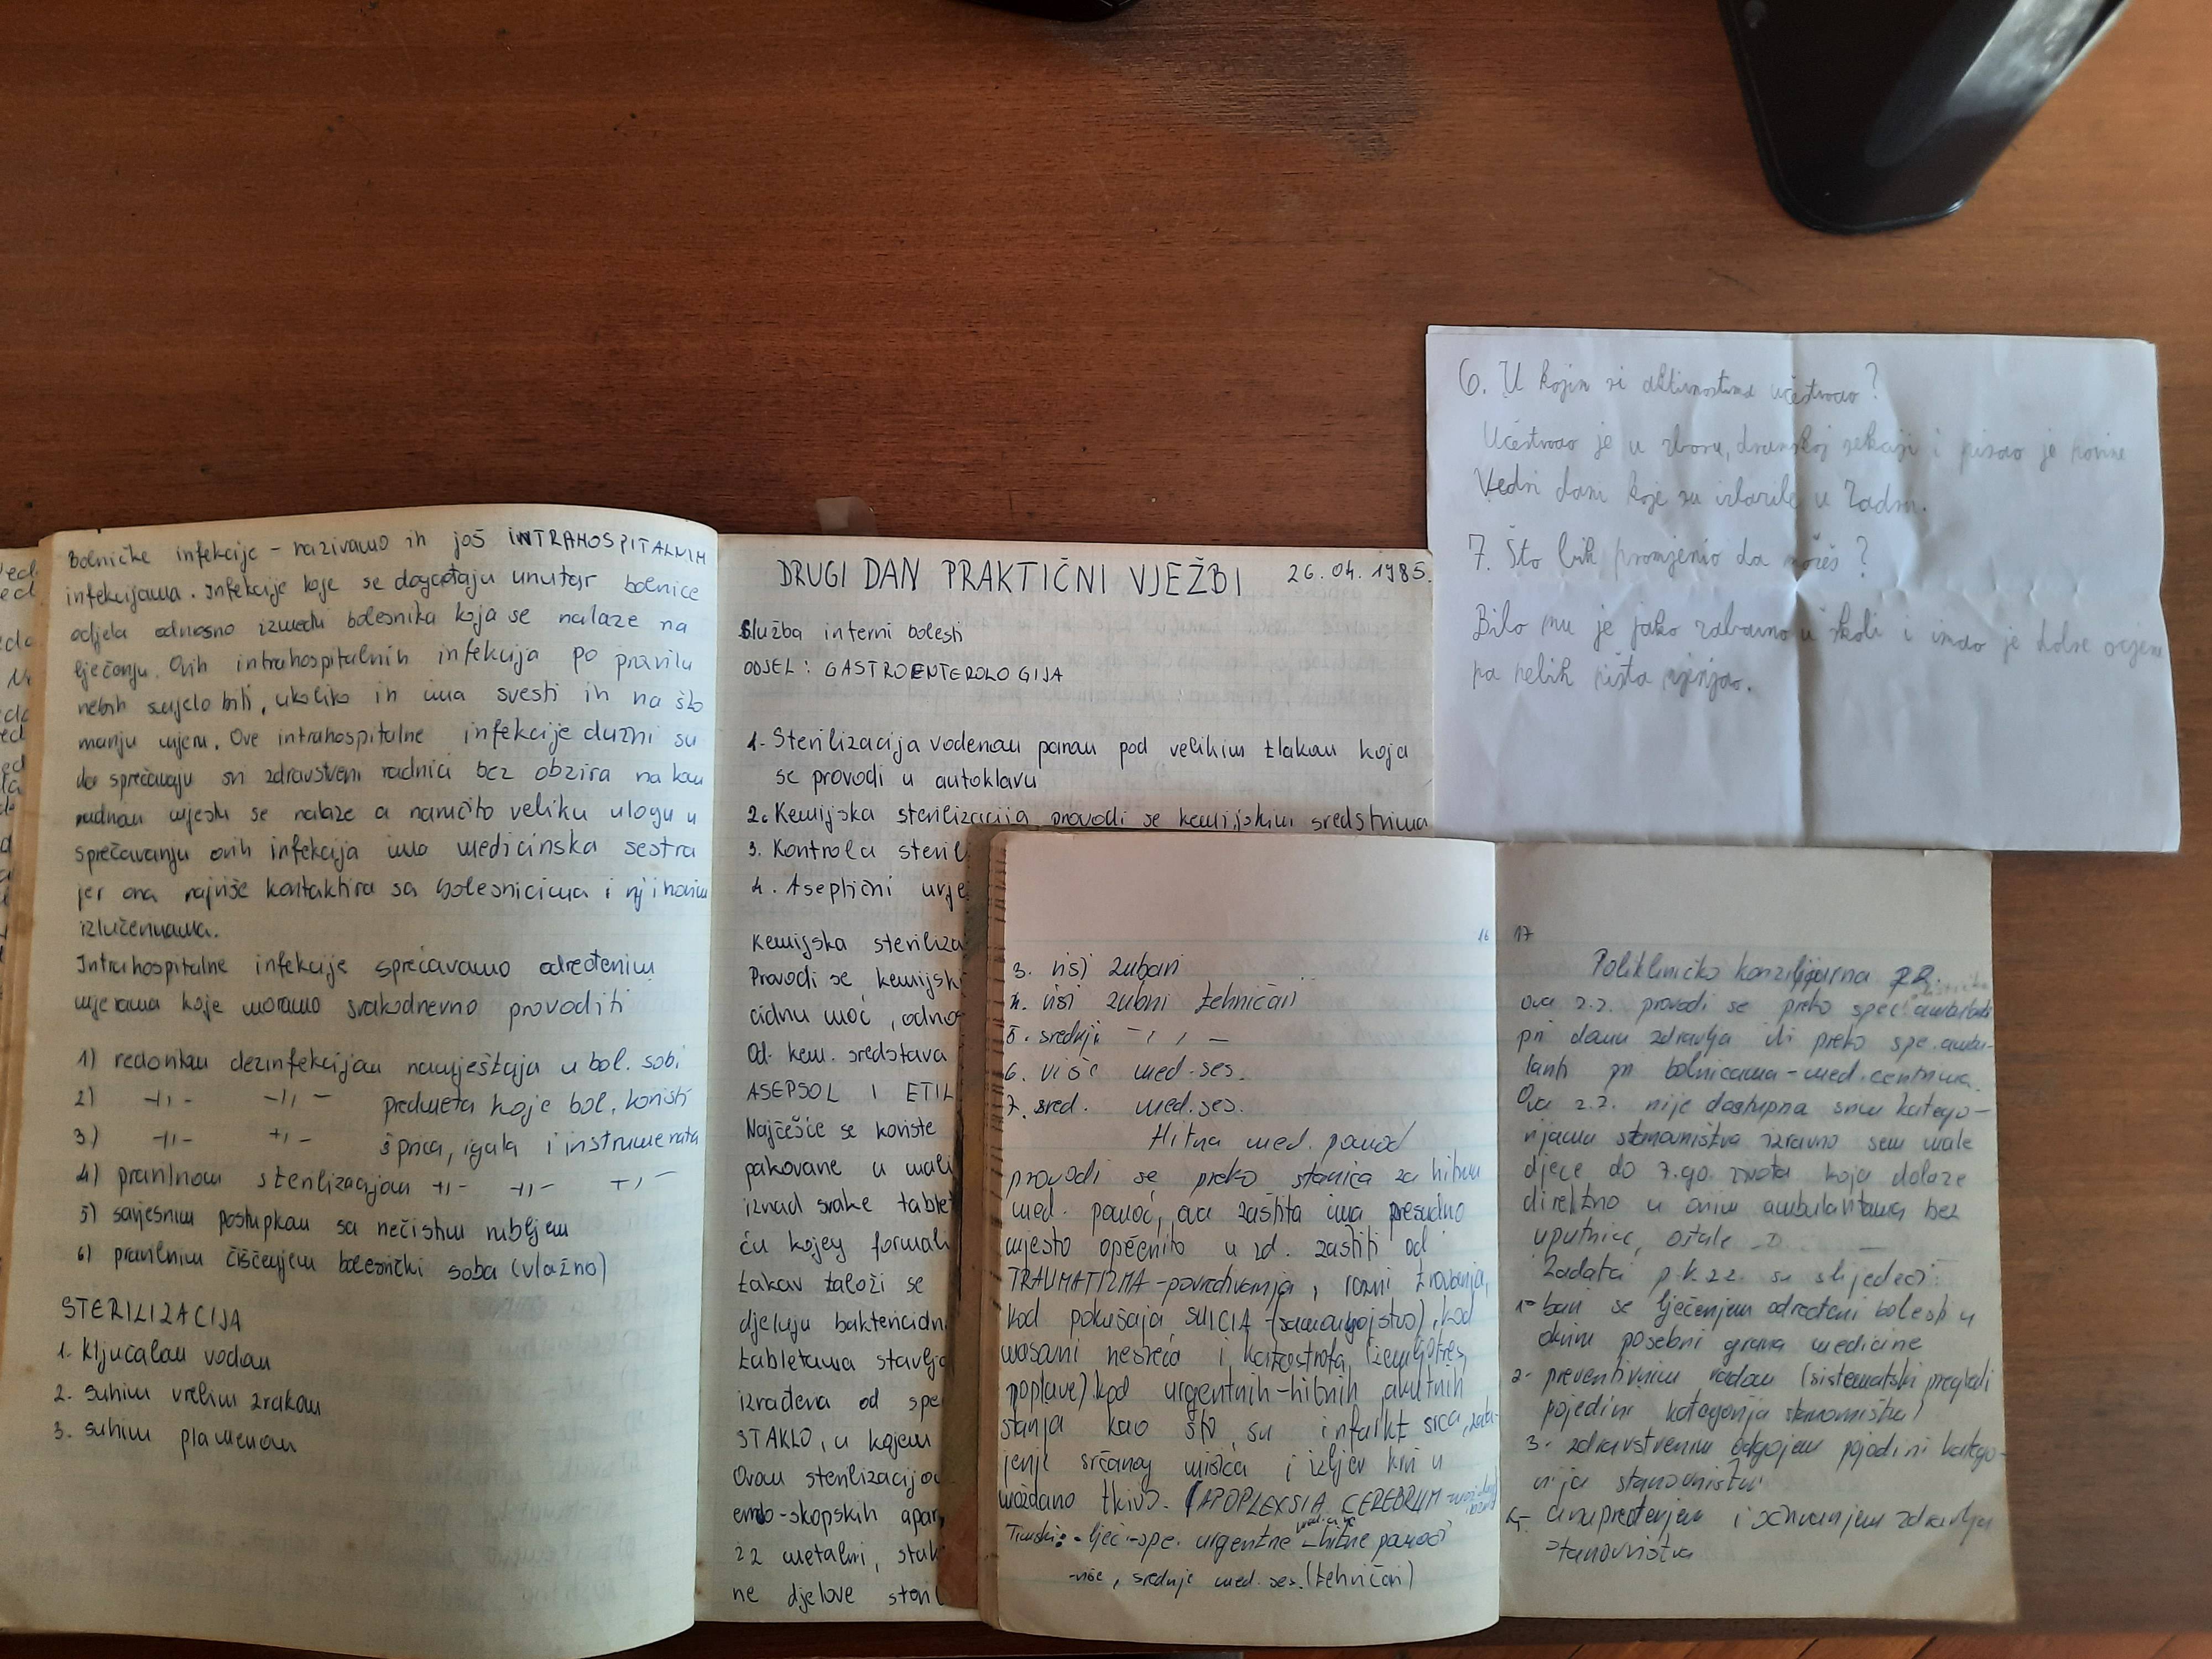 Bolničke infekcije - nazivamo ih još INTRAHOSPITALNIM
infekcijama. Infekcije koje se događaju unutar bolnice
odjela odnosno između bolesnika koja se nalaze na
lječenju. Ovih intrahospitalnih infekcija po pravilu
nebih smjelo biti, ukoliko ih ima svesti ih na što
manju mjeru. Ove intrahospitalne infekcije dužni su
da sprečavaju svi zdravstveni radnici bez obzira na kom
radnom mjestu se nalaze a naročito veliku ulogu u
sprečavanju ovih infekcija ima medicinska sestra
jer ona najviše kontaktira sa bolesnicima i njihovim
izlučevinama.
Intrahospitalne infekcije sprečavamo određenim
mjerama koje moramo svakodnevno provoditi
1) redovitom dezinfekcijom namještaja u bol. sobi
2) -11- -11- predmeta koje bol. koristi
3) -11- -11- šprica, igala i instrumenata
4) pravilnom sterilizacijom -11- -11- -11-
5) savjesnim postupkom sa nečistim rubljem
6) pravilnim čišćenjem bolesnički soba (vlažno)
STERILIZACIJA
1. Ključalom vodom
2. suhim vrelim zrakom
3. suhim plamenom
DRUGI DAN PRAKTIČNI VJEŽBI 26.04.1985.
Služba interni bolesti
ODJEL: GASTROENTEROLOGIJA
1. Sterilizacija vodenom parom pod velikim tlakom koja
se provodi u autoklavu
2. Kemijska sterilizacija provodi se kemijskim sredstvima
3. Kontrola steril
4. Aseptični
Kemijska steriliza
Provodi se kemijsk
cidnu moć, odno
Od kem. sredstava
ASEPSOL I ETIL
Najčešće se koriste
pakovane u mali
iznad svake tablet
ću kojey formali
takav taloži se
djeluju baktericidn
tabletama stavlja
izrađena od spe
STAKLO, u kojem
Ovom sterilizacijo
endo-skopskih apar
iz metalni, stak
ne djelove steril
6. U kojim si aktivnostima učestvovao?
Učestvovao je u zboru, dramskoj sekciji i pisao je novine
Vedri dani koje su izlazile u Zadru.
7. Što bih promjenio da možeš?
Bilo mu je jako zabavno u školi i imao je dobre ocjene
pa nebih ništa mjenjao.
16
3. viši zubari
4. viši zubni tehničari
5. srednji -,,-
6. više med. ses.
7. sred. med. ses.
Hitna med. pomoć
provodi se preko stanica za hitnu
med. pomoć, ova zaštita ima presudno
mjesto općenito u zd. zaštiti od
TRAUMATIZMA - povređivanja, razni trovanja,
kod pokušaja SUICIA - (samoubojstvo), kod
masovni nesreća i katastrofa (zemljotres,
poplave) kod urgentnih-hitnih akutnih
stanja kao što su infarkt srca, zata-
jenje srčanog mišića i izljev krvi u
moždano tkivo. (APOPLEKSIA CEREBRUM
Timski: - lječ. - spe. urgentne medicine - hitne pomoći
- više, srednje med. ses. (tehničari)
17
Polikliničko konzilijarna ZZ.
ova z.z. provodi se preko spec. ambulanti
pri domu zdravlja ili preko spe. ambu-
lanti pri bolnicama - med. centrima.
Ova z.z. nije dostupna svim katego-
rijama stanovništva izravno sem male
djece do 7. go. života koja dolaze
direktno u ovim ambulantama bez
uputnice, ostale
Zadata p.k.z.z. su slijedeći:
1- bavi se lječenjem određeni bolesti u
okviru posebni grana medicine
2- preventivnim radom (sistematski pregledi
pojedini kategorija stanovništva)
3- zdravstvenim odgojem pojedini katego-
rija stanovništva
4- unapređenjem i očuvanjem zdravlja
stanovništva